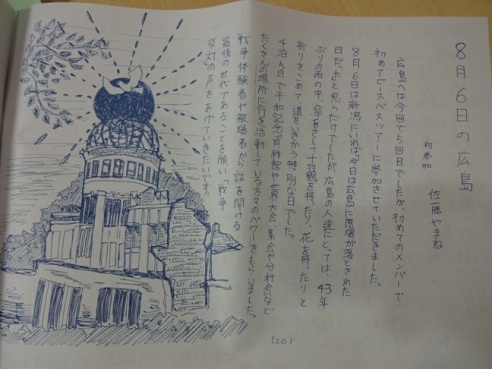 8月6日の広島
初参加　佐藤やまね
広島へは今回で5回目でしたが、初めてのメンバーで、
初めてピースバスツアーに参加させていただきました。
8月6日は新潟にいれば「今日は広島に原爆が落とされた
日だ」と思うだけでしたが、広島の人達にとっては、43年
ぶりの雨の中、傘をさして十羽鶴を持ったり、花を持ったりと
祈りをこめて道をいきかう特別な日でした。
4泊5日で平和記念資料館や世界大会、集会や分科会など
たくさんの場所に行き活動している方々のパワーをもらいました。
戦争体験者や被爆者から話を聞ける
最後の世代であることを願い、戦争
反対の声をあげていきたいです。
(20)